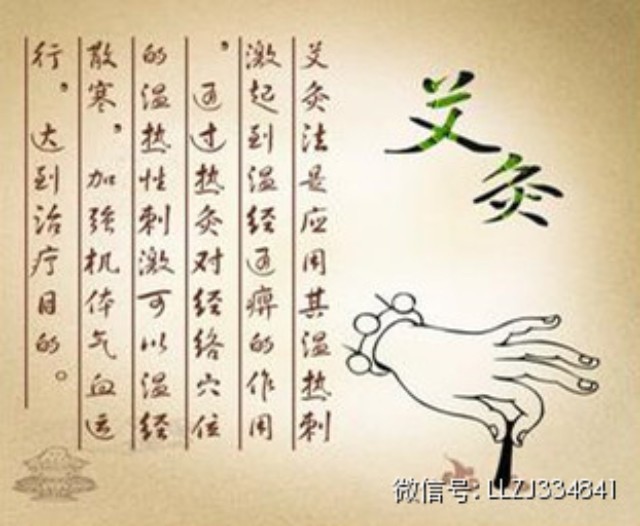 艾灸
艾灸法是应用其温热刺
激起到温经通痹的作用
，通过热灸对经络穴位
的温热性刺激可以温经
散寒，加強机体气血运
行，达到治疗目的。
微信号: LLZJ334841